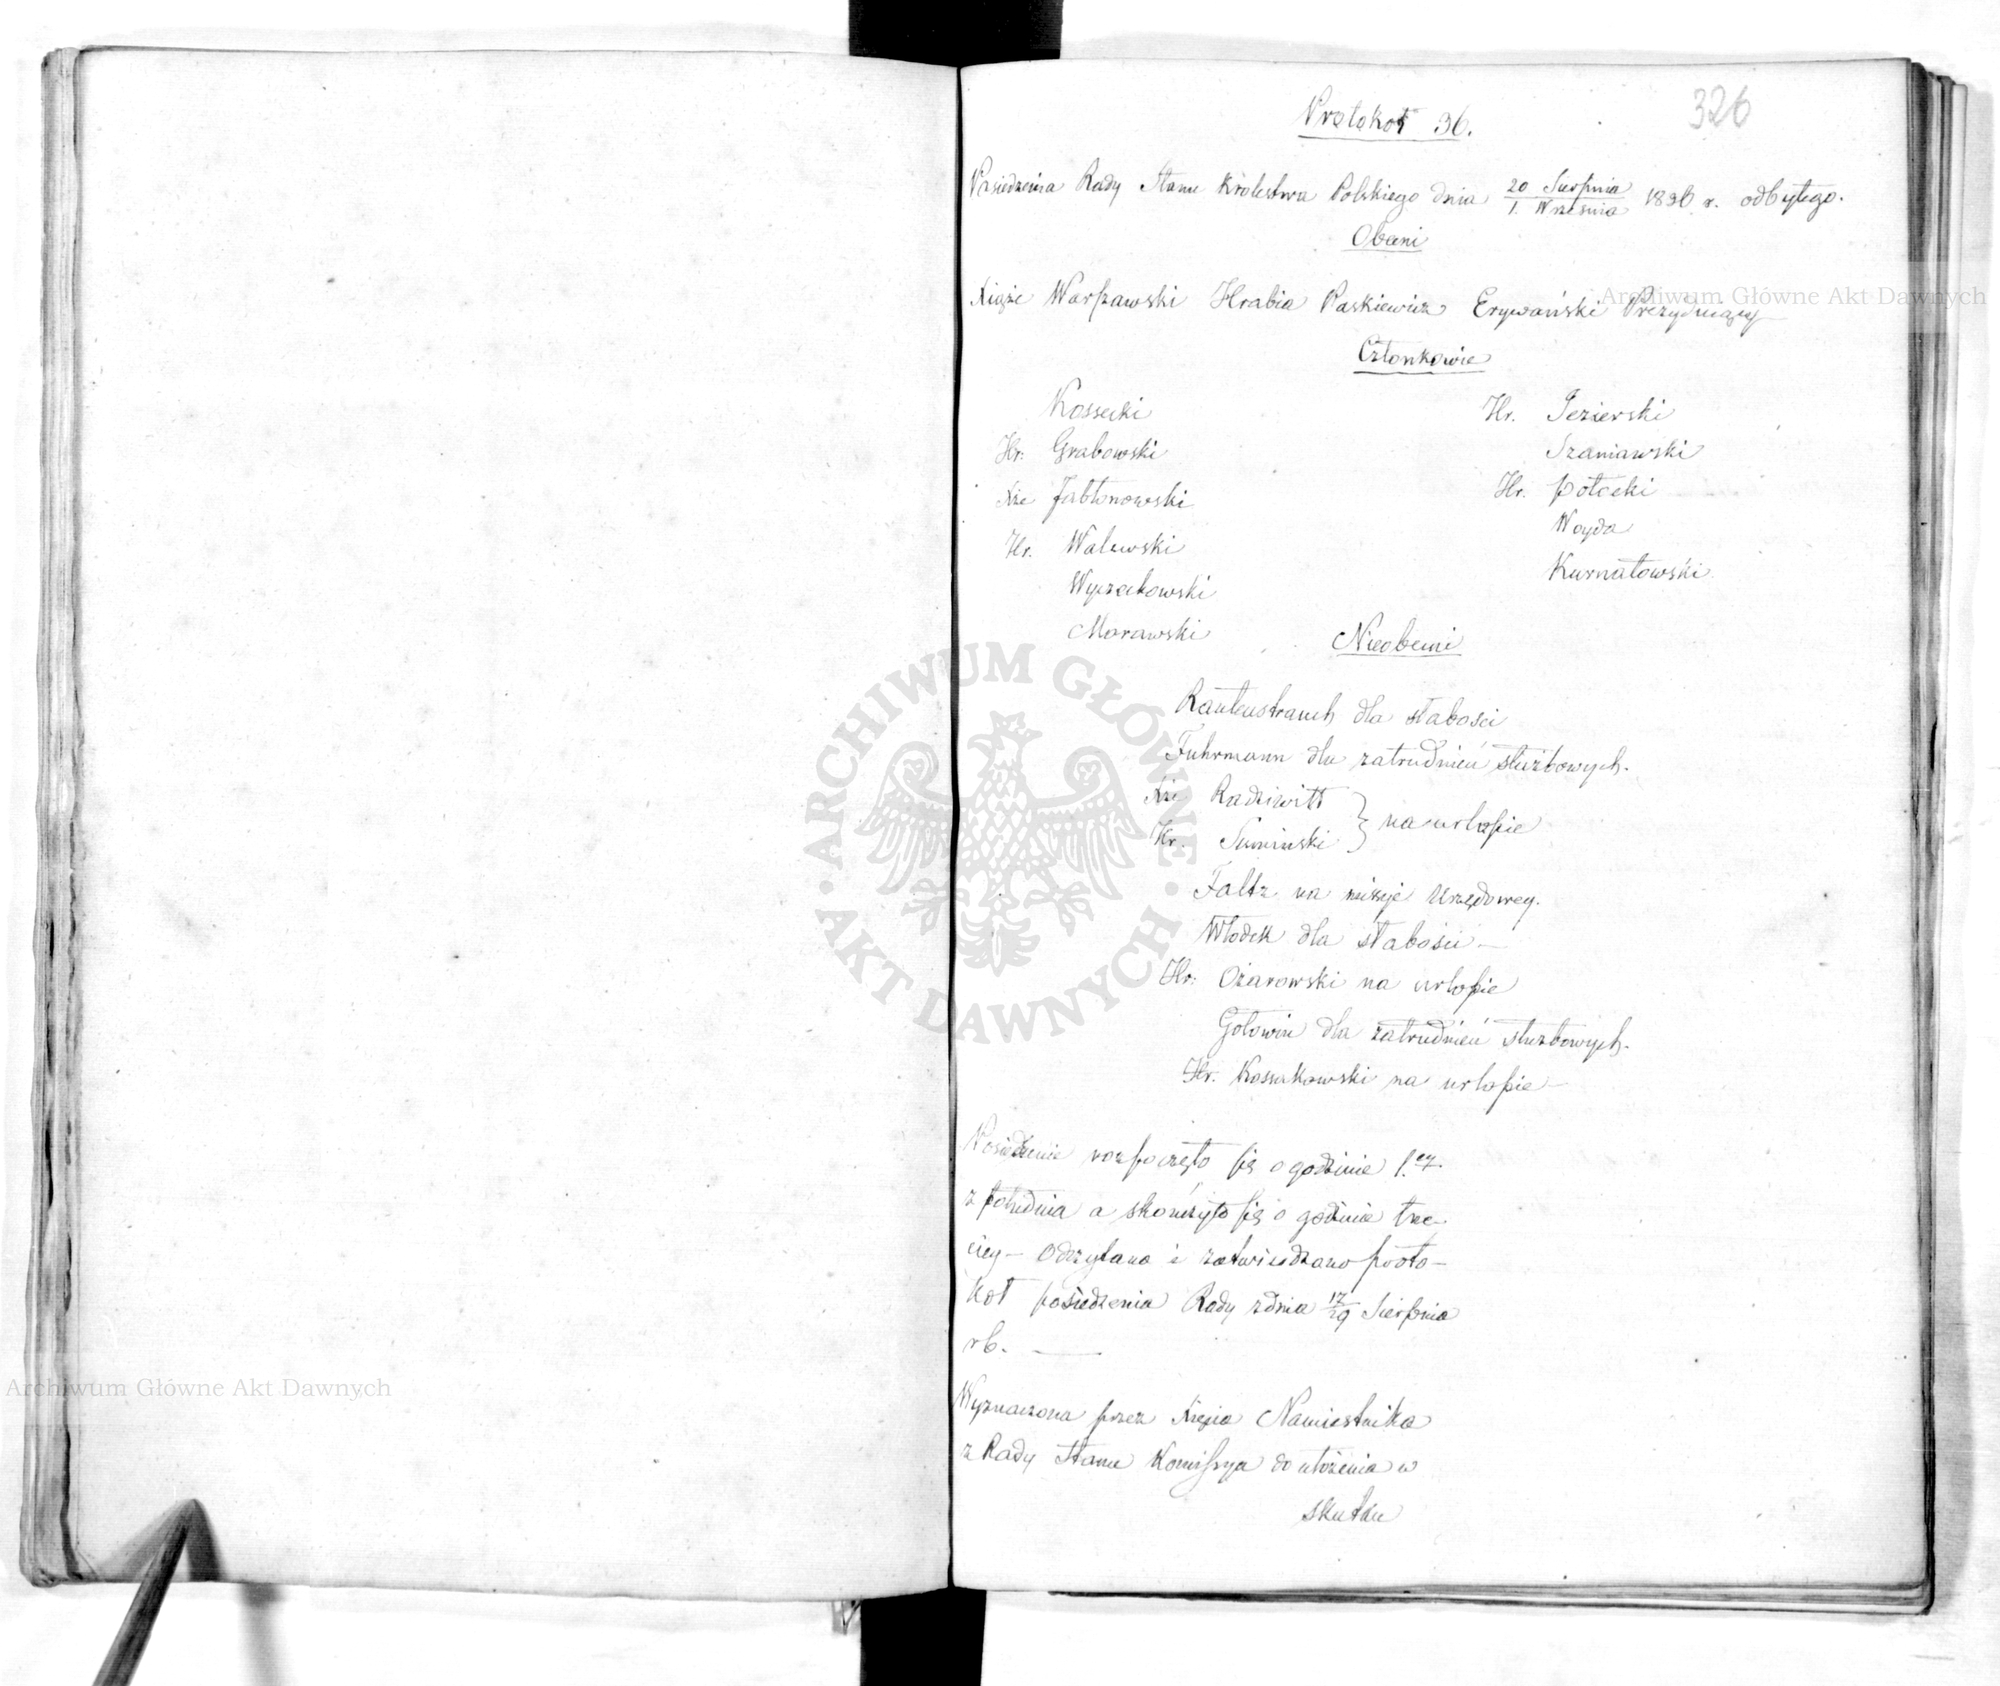 326
Protokoł 36.
Posiedzenia Rady Stanu Królestwa Polskiego dnia 20 Sierpnia / 1. Września 1836 r. odbytego.
Obecni
Xiąże Warszawski Hrabia Paskiewicz Erywański Prezydujący
Członkowie
Kossecki
Hr: Grabowski
Xże Jabłonowski
Hr. Walewski
Wyczechowski
Morawski
Hr. Jezierski
Szaniawski
Hr. Potocki
Woyda
Kurnatowski
Nieobecni
Rautenstrauch dla słabości
Fuhrmann dla zatrudnień służbowych.
Xże Radziwiłł
Hr. Sumiński } na urlopie
Faltz na missyi Urzędowey.
Włodek dla słabości —
Hr: Ożarowski na urlopie
Gołowin dla zatrudnień służbowych.
Hr. Kossakowski na urlopie —
Posiedzenie rozpoczęło się o godzinie 1.ey
z południa a skończyło się o godzinie trze-
ciey — Odczytano i zatwierdzono proto-
kół posiedzenia Rady z dnia 17/29 Sierpnia
rb. —
Wyznaczona przez Xięcia Namiestnika
z Rady Stanu Komissya do ułożenia w
skutku
ARCHIWUM GŁÓWNE AKT DAWNYCH
Archiwum Główne Akt Dawnych
Archiwum Główne Akt Dawnych